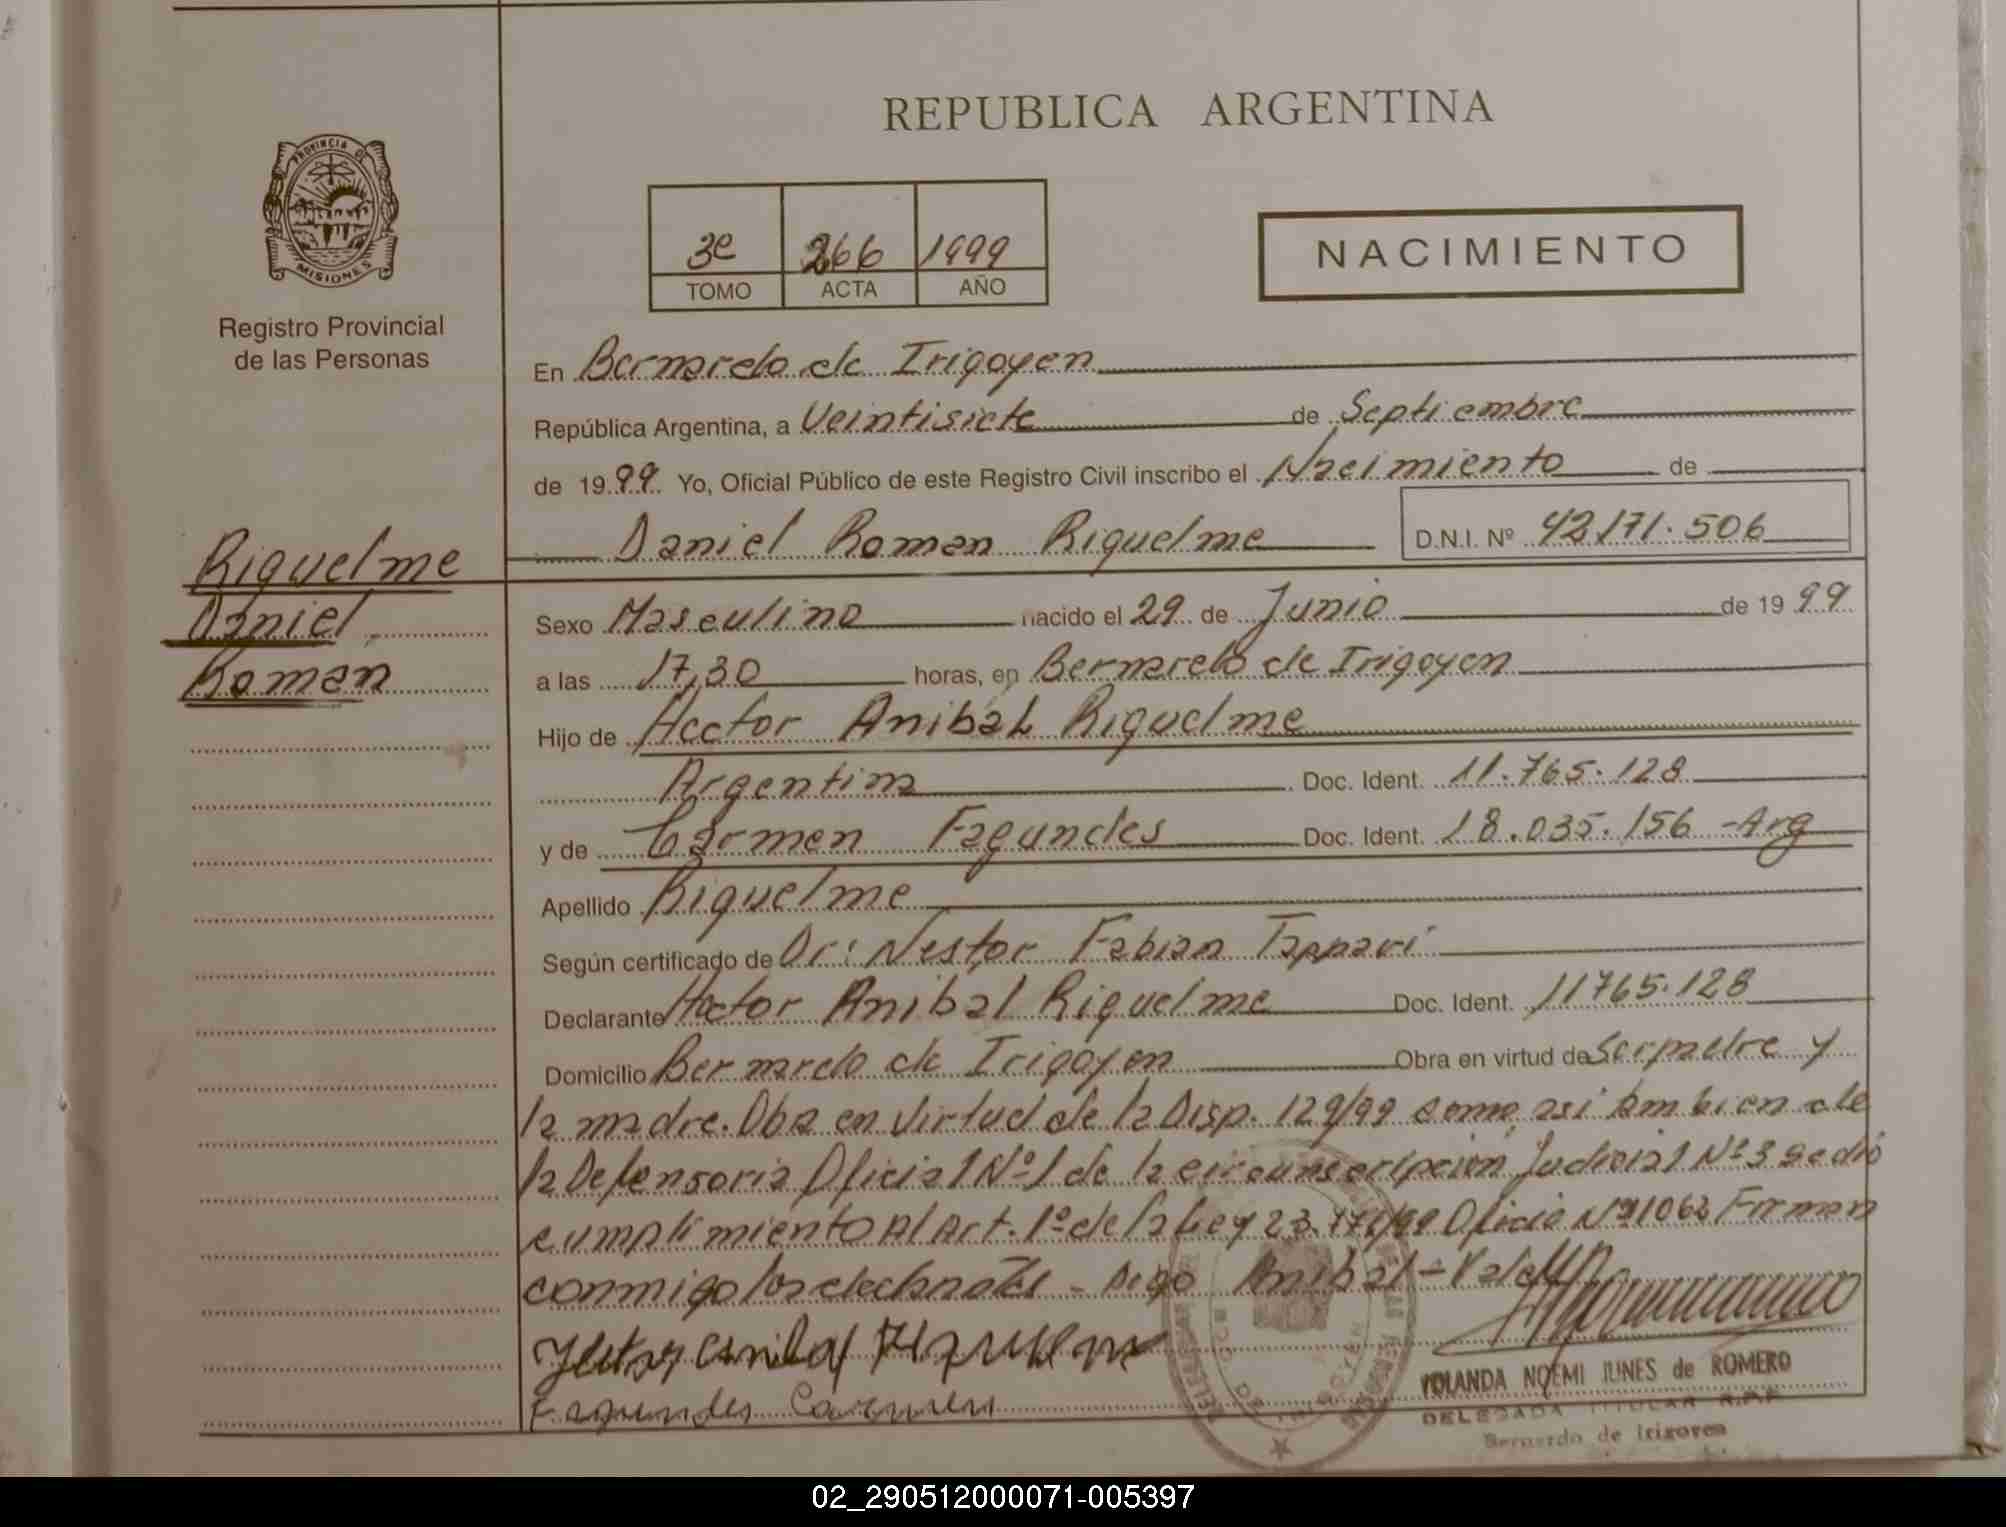 REPUBLICA ARGENTINA
PROVINCIA DE
MISIONES
Registro Provincial
de las Personas
3e 266 1999
TOMO ACTA AÑO
NACIMIENTO
En Bernardo de Irigoyen
República Argentina, a Veintisiete de Septiembre
de 1999 Yo, Oficial Público de este Registro Civil inscribo el Nacimiento de
Daniel Roman Riquelme D.N.I. Nº 42.171.506
Riquelme
Daniel
Roman
Sexo Masculino nacido el 29 de Junio de 1999
a las 17,30 horas, en Bernardo de Irigoyen
Hijo de Hector Anibal Riquelme
Argentina Doc. Ident. 11.765.128
y de Carmen Fagundes Doc. Ident. 18.035.156 - Arg
Apellido Riquelme
Según certificado de Dr: Nestor Fabian Tappari
Declarante Hector Anibal Riquelme Doc. Ident. 11765.128
Domicilio Bernardo de Irigoyen Obra en virtud de Ser padre y
la madre. Oba en virtud de la Disp. 129/99 como asi tambien de
la Defensoria Oficial Nº 1 de la circunscripcion Judicial Nº 3 se dio
cumplimiento Al Art. 1º de la Ley Oficio Nº 1063 Firman
conmigo los declarantes - Digo Anibal - Vale
Hector Anibal Riquelme
Fagundes Carmen
YOLANDA NOEMI JUNES de ROMERO
DELEGADA TITULAR R.P.P.
Bernardo de Irigoyen
02_290512000071-005397